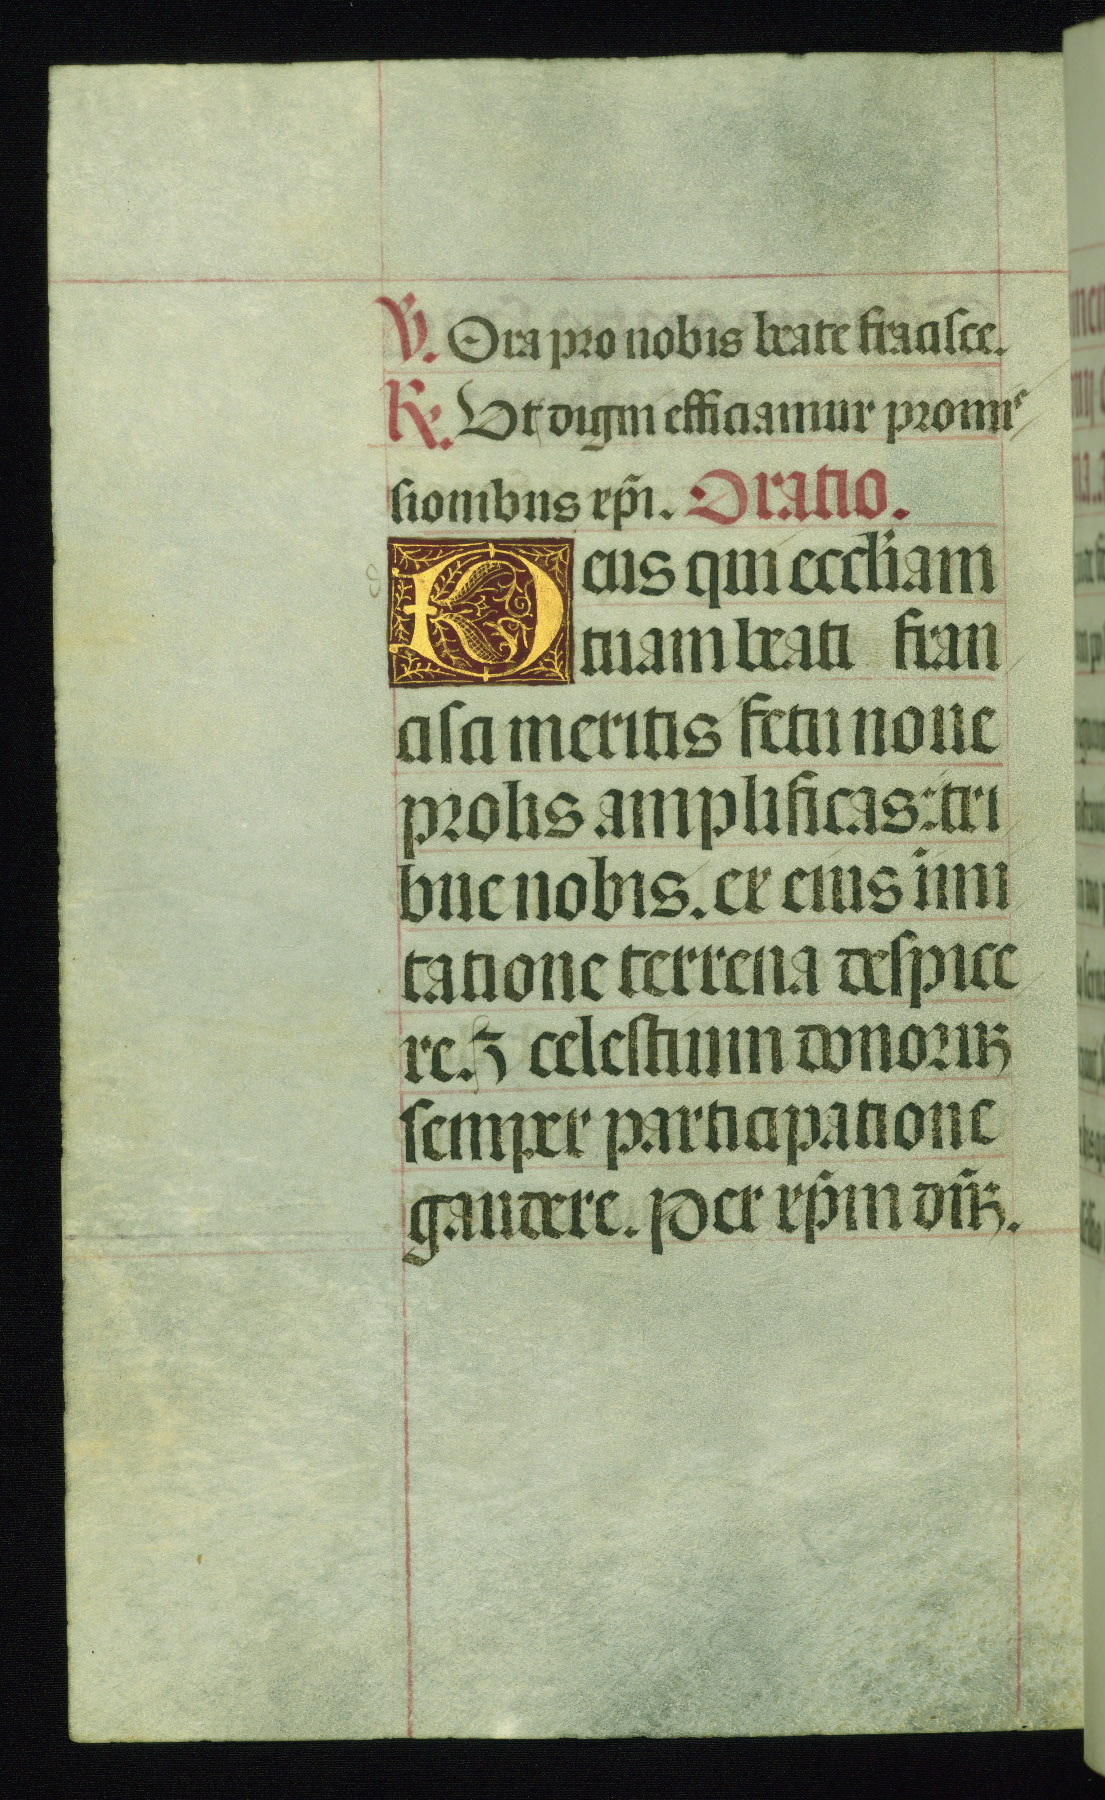 V. Ora pro nobis beate fracisce.
R. Vt digni efficiamur promis
sionibus xp̄i. Oratio.
Deus qui eccl̄iam
tuam beati fran
cisci meritis fetu noue
prolis amplificas: tri
bue nobis. ex eius imi
tatione terrena despice
re. ⁊ celestium donoꝝ
semper participatione
gaudere. Per xp̄m dn̄ꝝ.